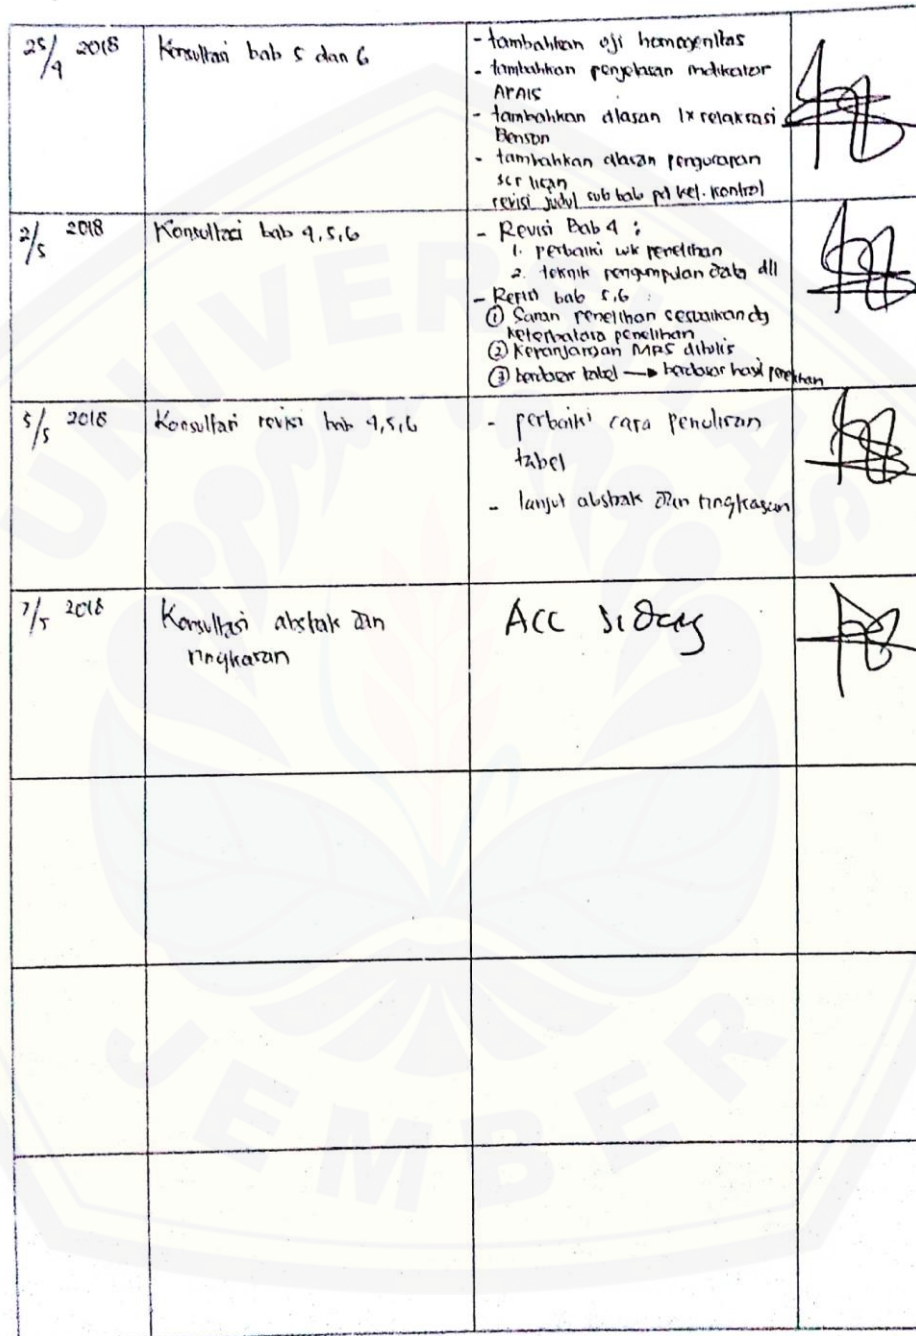 25/4 2018
Konsultasi bab 5 dan 6
- tambahkan uji homogenitas
- tambahkan penjelasan indikator
APAIS
- tambahkan alasan 1x relaksasi
Benson
- tambahkan alasan pengucapan
scr lisan
revisi judul sub bab pd kel. kontrol
2/5 2018
Konsultasi bab 4,5,6
- Revisi Bab 4 :
1. perbaiki wk penelitian
2. teknik pengumpulan data dll
- Revisi bab 5,6 :
① Saran penelitian sesuaikan dg
keterbatasan penelitian
② Kepanjangan MPS ditulis
③ berdasar tabel → berdasar hasil penelitian
5/5 2018
Konsultasi revisi bab 4,5,6
- perbaiki cara penulisan
tabel
- lanjut abstrak dan ringkasan
7/5 2018
Konsultasi abstrak dan
ringkasan
ACC sidang
UNIVERSITAS
JEMBER